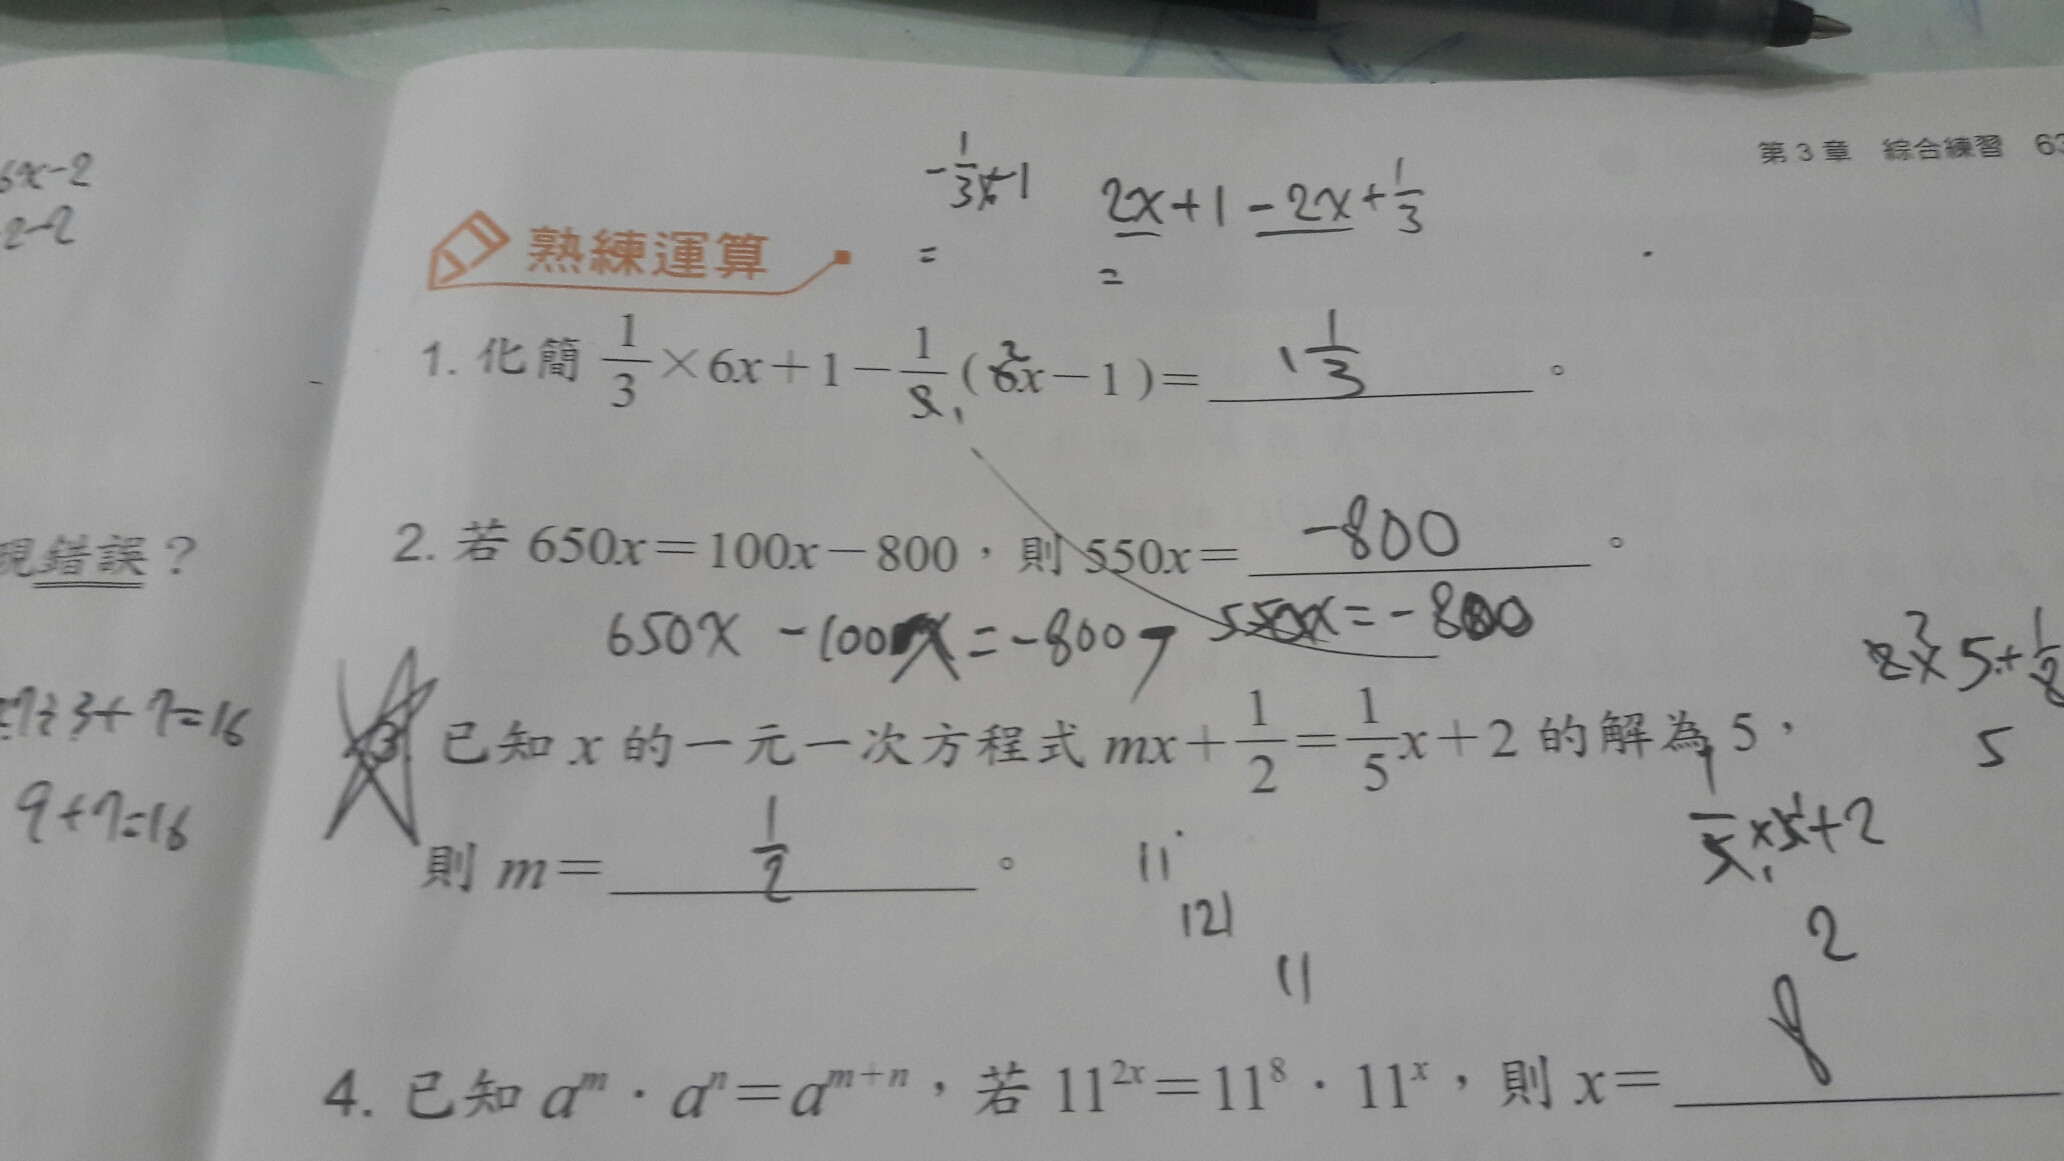 第3章 綜合練習 63
6x-2
2-2
現錯誤？
÷3+7=16
9+7=16
-1/3+1
=
2x+1-2x+1/3
=
熟練運算
1. 化簡 1/3×6x+1-1/3(6x-1)= 1 1/3 。
2. 若 650x=100x-800，則 550x= -800 。
650x -100x=-800 550x=-800
3. 已知 x 的一元一次方程式 mx+1/2=1/5x+2 的解為 5，
則 m= 1/2 。
5+1/2
5
1/5×5+2
2
11
121
11
4. 已知 a^m · a^n=a^(m+n)，若 11^(2x)=11^8 · 11^x，則 x= 8